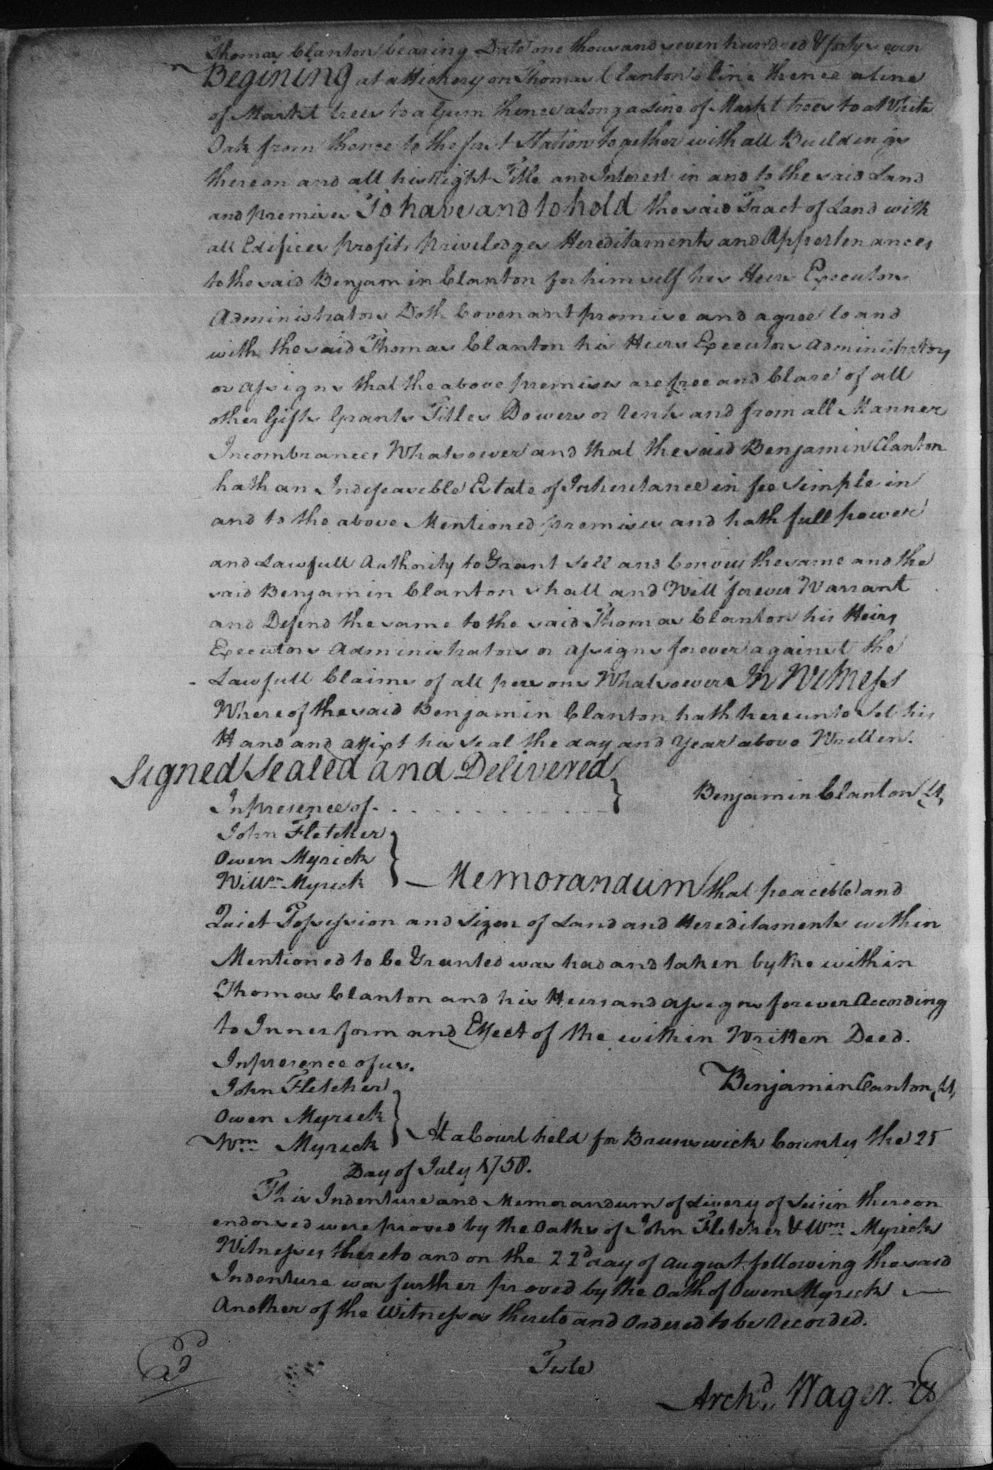 Thomas Clanton bearing Date one thousand seven hundred & forty seven
Begining at a Hickery on Thomas Clanton's line thence a line
of Markt trees to a Gum thence along a Line of Markt trees to a White
Oak from thence to the first Station together with all Buildings
thereon and all his Right Title and Interest in and to the said Land
and premises To have and to hold the said Tract of Land with
all Edifices profits priveledges Hereditaments and Appertenances
to the said Benjamin Clanton for himself his Heirs Executors
Administrators Doth Covenant promise and agree to and
with the said Thomas Clanton his Heirs Executors Administrators
or assigns that the above premises are free and Clare of all
other Gifts Grants Titles Dowers or Rents and from all Manner
Incombrances Whatsoever and that the said Benjamin Clanton
hath an Indefeasible Estate of Inheretance in fee Simple in
and to the above Mentioned premises and hath full power
and Lawfull Authority to Grant Sell and Convey the same and the
said Benjamin Clanton shall and Will forever Warrant
and Defend the same to the said Thomas Clanton his Heirs
Executors Administrators or assigns forever against the
Lawfull Claims of all persons Whatsoever In Witness
Whereof the said Benjamin Clanton hath hereunto Set his
Hand and affixt his Seal the day and Year above Written.
Signed Sealed and Delivered
In presence of . . . . . . . . . . } Benjamin Clanton LS
John Fletcher
Owen Myrick
Willm Myrick } — Memorandum that peaceble and
Quiet Possession and Sizen of Land and Hereditaments within
Mentioned to be Granted was had and taken by the within
Thomas Clanton and his Heirs and assigns forever According
to Inner form and Effect of the within Written Deed.
In presence of us.
John Fletcher Benjamin Clanton LS
Owen Myrick
Wm Myrick } At a Court held for Brunswick County the 25
Day of July 1758.
This Indenture and Memorandum of Livery of Seisin thereon
endorsed were proved by the Oaths of John Fletcher & Wm Myrick
Witnesses thereto and on the 22d day of August following the said
Indenture was further proved by the Oath of Owen Myrick —
Another of the Witnesses thereto and Ordered to be Recorded.
Teste
Archd. Wager